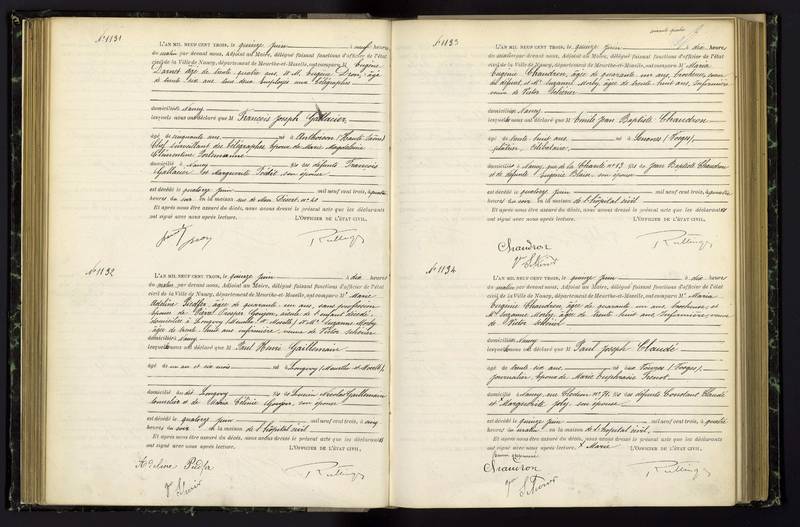 N° 1131
L'AN MIL NEUF CENT TROIS, le quinze juin à neuf heures
du matin par devant nous, Adjoint au Maire, délégué faisant fonctions d'officier de l'état
civil de la Ville de Nancy, département de Meurthe-et-Moselle, ont comparu M. Eugène
Darnet âgé de trente quatre ans et M. Eugène Dron, âgé
de trente six ans tous deux Employés aux Télégraphes
domiciliés à Nancy
lesquels nous ont déclaré que M François Joseph Gallacier
âgé de cinquante ans né à Anthoison (Haute Saône)
Chef surveillant du télégraphe époux de Marie Magdeleine
Clémentine
domicilié à Nancy fils des défunts François
Gallacier et Marguerite son épouse
est décédé le quatorze juin mil neuf cent trois, à quatre
heures du soir en la maison rue de Mon Désert n° 40
Et après nous être assuré du décès, nous avons dressé le présent acte que les déclarants
ont signé avec nous après lecture. L'OFFICIER DE L'ÉTAT CIVIL,
N° 1132
L'AN MIL NEUF CENT TROIS, le quinze juin à dix heures
du matin, par devant nous, Adjoint au Maire, délégué faisant fonctions d'officier de l'état
civil de la Ville de Nancy, département de Meurthe-et-Moselle, ont comparu Me Marie
Adeline Piedfer, âgée de quarante un ans, sans profession
épouse de Joseph Gougon, aïeule de l'enfant décédé
domiciliée à Longwy (Meurthe et Moselle) et Me Suzanne Morby
âgée de trente huit ans infirmière, veuve de Victor
domiciliée Nancy
lesquelles nous ont déclaré que M Paul Henri Gaillemain
âgé de un an et six mois né à Longwy (Meurthe et Moselle),
domicilié au dit Longwy fils de Lucien Nicolas Gaillemain
tonnelier et de Maria Célinie Gougon, son épouse
est décédé le quatorze juin mil neuf cent trois, à onze
heures du soir en la maison de l'hôpital civil
Et après nous être assuré du décès, nous avons dressé le présent acte que les déclarants
ont signé avec nous après lecture. L'OFFICIER DE L'ÉTAT CIVIL,
Adeline Piedfer
N° 1133
L'AN MIL NEUF CENT TROIS, le quinze juin à dix heures
du matin par devant nous, Adjoint au Maire, délégué faisant fonctions d'officier de l'état
civil de la Ville de Nancy, département de Meurthe-et-Moselle, ont comparu Me Maria
Eugénie Chaudron, âgée de quarante un ans, brocheuse, sœur
du défunt, et Me Suzanne Morby, âgée de trente huit ans, Infirmière
veuve de Victor
domiciliées Nancy
lesquelles nous ont déclaré que M Emile Jean Baptiste Chaudron
âgé de trente huit ans né à Senones (Vosges),
plâtrier, Célibataire
domicilié à Nancy, rue de la Charité n° 13 fils de Jean Baptiste Chaudron
et de défunte Eugénie Blaise, son épouse
est décédé le quatorze juin mil neuf cent trois, à quatre
heures du soir en la maison de l'hôpital civil
Et après nous être assuré du décès, nous avons dressé le présent acte que les déclarants
ont signé avec nous après lecture. L'OFFICIER DE L'ÉTAT CIVIL,
Chaudron
N° 1134
L'AN MIL NEUF CENT TROIS, le quinze juin à dix heures
du matin par devant nous, Adjoint au Maire, délégué faisant fonctions d'officier de l'état
civil de la Ville de Nancy, département de Meurthe-et-Moselle, ont comparu Me Maria
Eugénie Chaudron, âgée de quarante un ans, brocheuse, et
Me Suzanne Morby, âgée de trente huit ans, Infirmière, veuve
de Victor
domiciliées Nancy
lesquelles nous ont déclaré que M Paul Joseph Claudé
âgé de trente six ans né aux Vosges (Vosges),
journalier, époux de Marie Euphrasie
domicilié à Nancy, rue Clodion n° 71 fils des défunts Constant Claudé
et Marguerite Joly, son épouse
est décédé le quinze juin mil neuf cent trois, à quatre
heures du matin en la maison de l'hôpital civil,
Et après nous être assuré du décès, nous avons dressé le présent acte que les déclarants
ont signé avec nous après lecture. L'OFFICIER DE L'ÉTAT CIVIL,
Chaudron